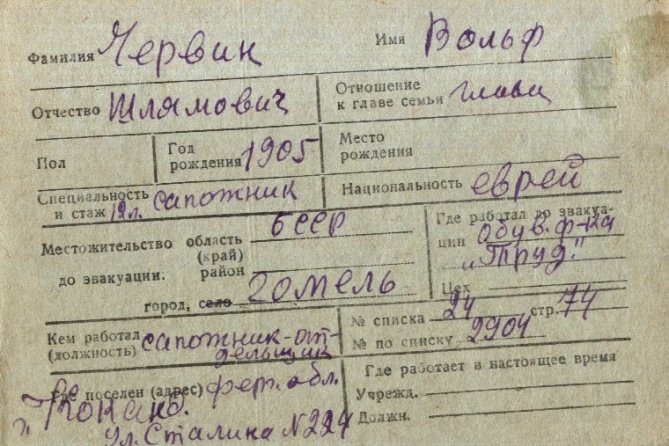 Фамилия Червин Имя Вольф
Отчество Шлямович Отношение к главе семьи глава
Пол Год рождения 1905 Место рождения
Специальность и стаж 19 л. сапожник Национальность еврей
Местожительство область (край) БССР Где работал до эвакуации Обув. ф-ка
до эвакуации. район „Труд"
город, село гомель Цех
Кем работал (должность) сапожник-отдельщик № списка 24 стр. 74
№ по списку 2904
Где поселен (адрес) ферг. обл. Где работает в настоящее время
г. Коканд. Учрежд.
ул. Сталина N 224 Должн.